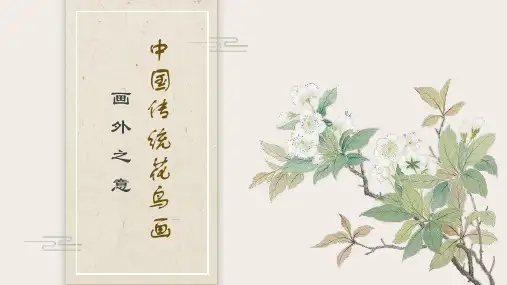 中国传统花鸟画
画外之意